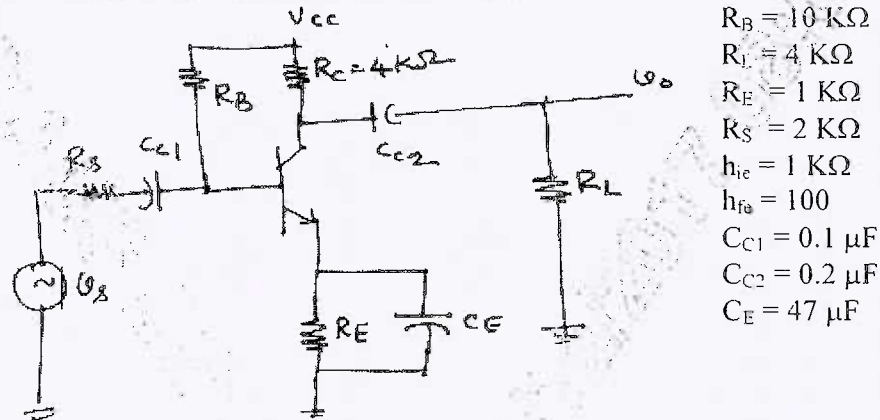 Vcc
R_C = 4KΩ
R_B
C_C1
R_s
C_C2
v_o
R_L
~
v_s
R_E
C_E
R_B = 10 KΩ
R_L = 4 KΩ
R_E = 1 KΩ
R_S = 2 KΩ
h_ie = 1 KΩ
h_fe = 100
C_C1 = 0.1 μF
C_C2 = 0.2 μF
C_E = 47 μF